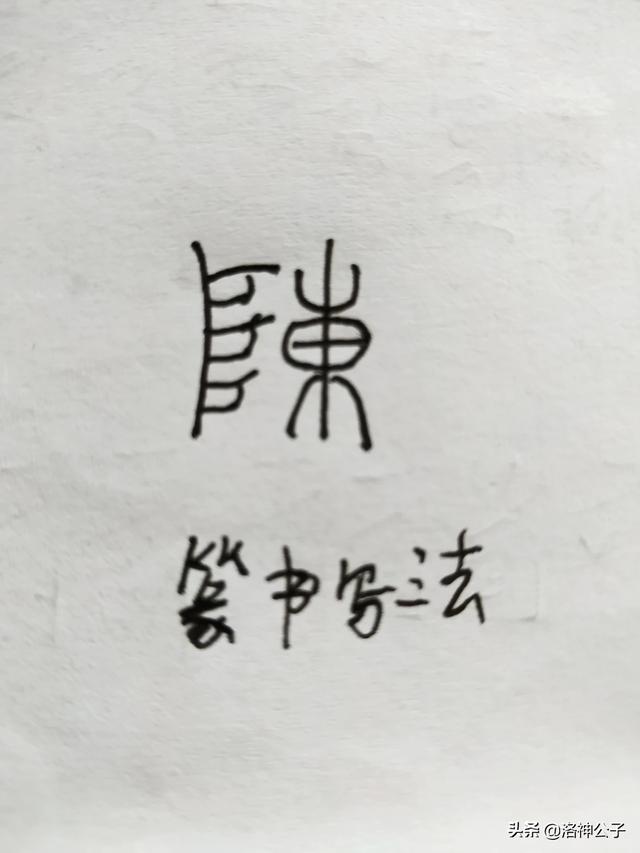 陳
篆书写法
头条 @洛神公子